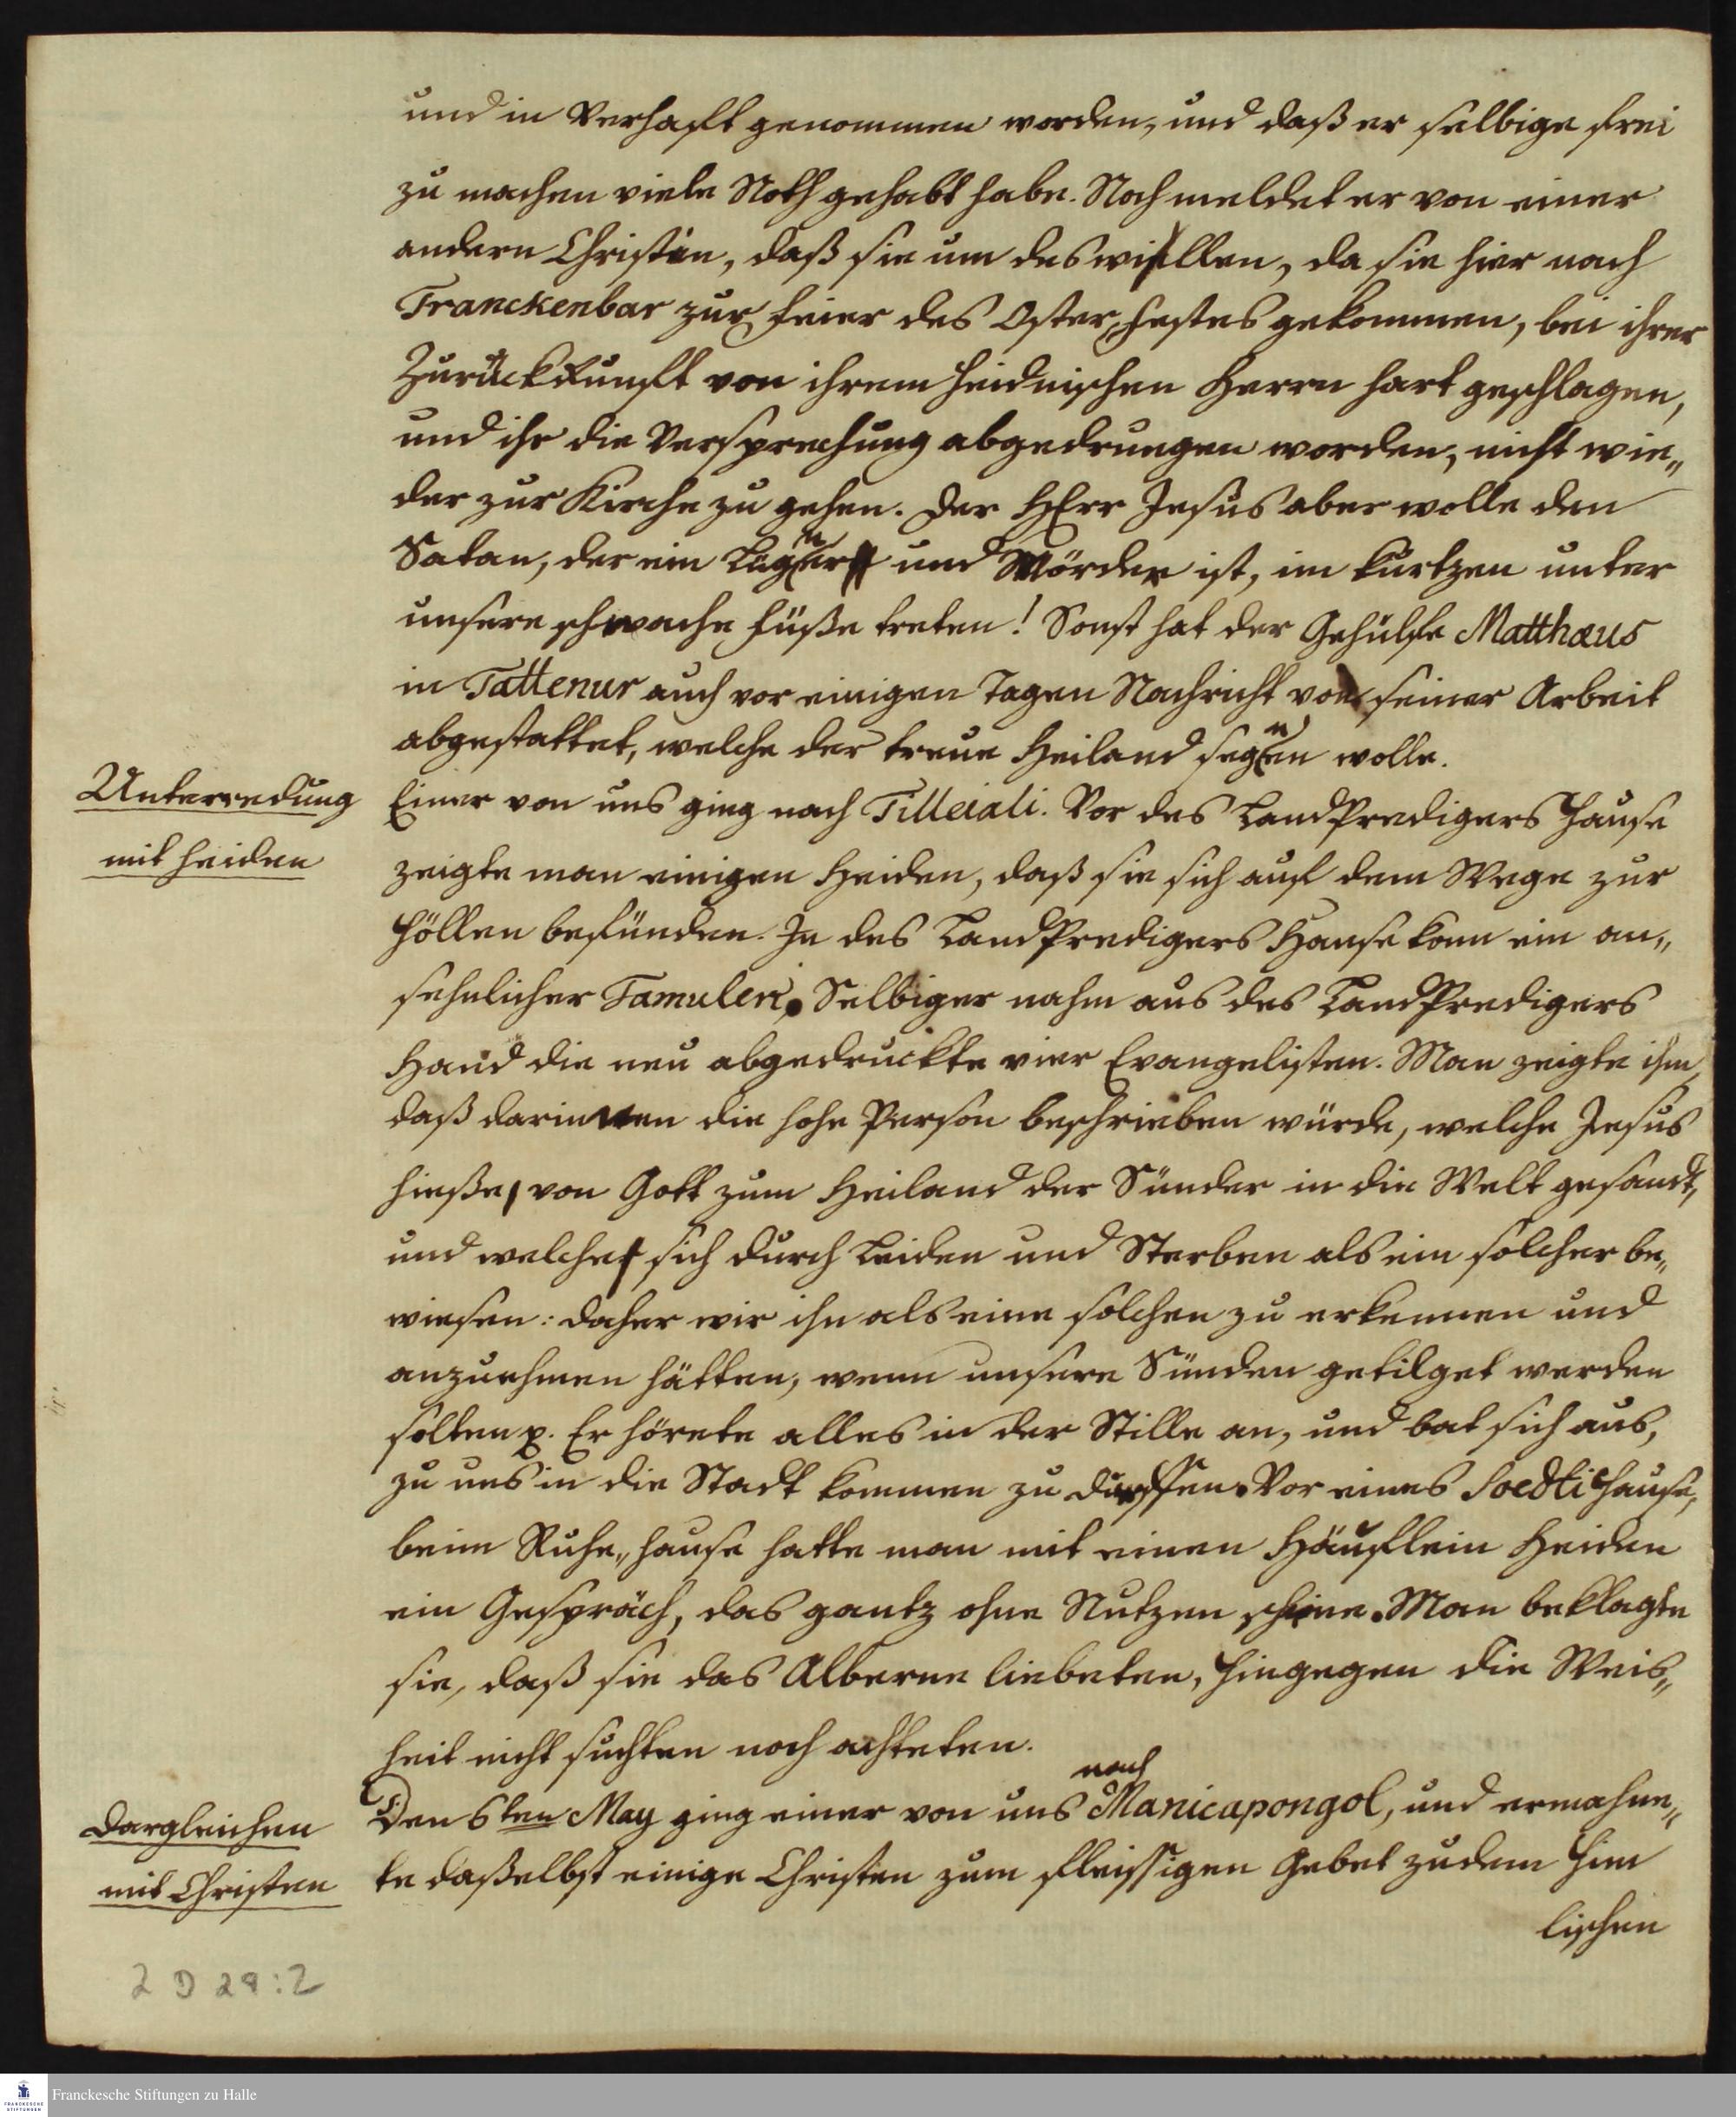 und in Verhafft genommen worden, und daß er selbige frei
zu machen viele Noth gehabt habe. Noch meldet er von einer
andern Christin, daß sie um des willen, da sie hier nach
Tranckenbar zur Feier des Oster Festes gekommen, bei ihrer
Zurückkunfft von ihrem heidnischen Herrn hart geschlagen,
und ihr die Versprechung abgedrungen worden, nicht wie„
der zur Kirche zu gehen. Der HErr Jesus aber wolle den
Satan, der ein Lügner und Mörder ist, im kurtzen unter
unsere schwache Füße treten! Sonst hat der Gehülfe Matthæus
in Tattenur auch vor einigen Tagen Nachricht von seiner Arbeit
abgestattet, welche der treue Heiland segnen wolle.
Unterredung
mit Heiden
Einer von uns ging nach Tilleiali. Vor des LandPredigers Hause
zeigte man einigen Heiden, daß sie sich auf dem Wege zur
Höllen befünden. In des LandPredigers Hause kam ein an„
sehnlicher Tamuler. Selbiger nahm aus des LandPredigers
Hand die neu abgedruckte vier Evangelisten. Man zeigte ihm,
daß darinnen die hohe Person beschrieben würde, welche Jesus
hieße, von Gott zum Heiland der Sünder in die Welt gesandt,
und welche sich durch Leiden und Sterben als ein solcher be„
wiesen: daher wir ihn als eine solchen zu erkennen und
anzunehmen hätten, wenn unsere Sünden getilget werden
solten p. Er hörete alles in der Stille an, und bat sich aus,
zu uns in die Stadt kommen zu dürffen. Vor eines Soedti Hause,
beim Ruhe„hause hatte man mit einen Häuflein Heiden
ein Gespräch, das gantz ohne Nutzen schiene. Man beklagte
sie, daß sie das Alberne liebeten, hingegen die Weis„
heit nicht suchten noch achteten.
Dergleichen
mit Christen
Den 6ten May ging einer von uns nach Manicapongol, und ermahne„
te daßelbst einige Christen zum fleissigen Gebet zu dem him
lischen
2 D 29:2
Franckesche Stiftungen zu Halle
FRANCKESCHE
STIFTUNGEN